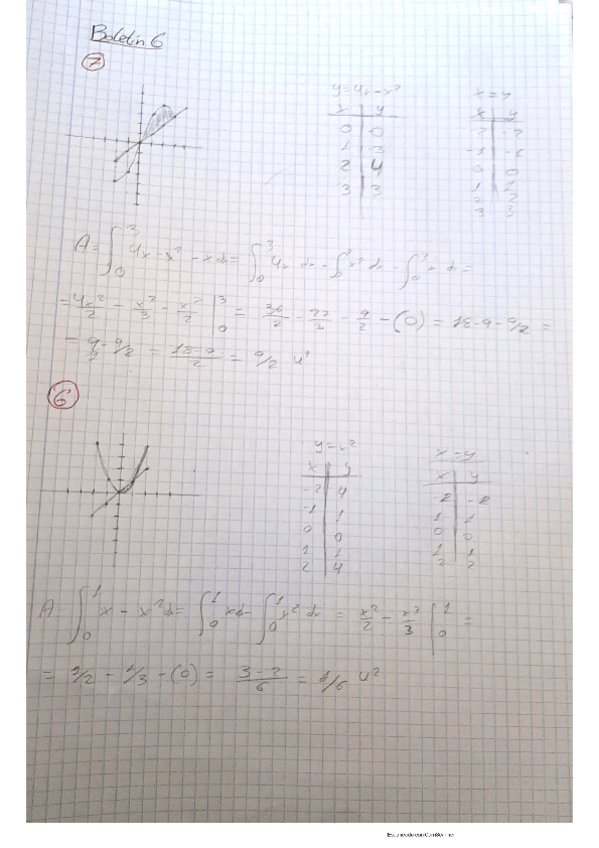 Boletín 6
7
y=4x-x² x=y
x y x y
0 0 -2 -2
1 3 -1 -1
2 4 0 0
3 3 1 1
2 2
3 3
A=∫₀³ 4x-x²-x dx= ∫₀³ 4x dx - ∫₀³ x² dx - ∫₀³ x dx =
= 4x²/2 - x³/3 - x²/2 |₀³ = 36/2 - 27/3 - 9/2 - (0) = 18-9-9/2 =
= 9 - 9/2 = 18-9/2 = 9/2 u²
6
y=x² x=y
x y x y
-2 4 -2 -2
-1 1
0 0 0 0
1 1 1 1
2 4 2 2
A=∫₀¹ x - x² dx= ∫₀¹ x dx - ∫₀¹ x² dx = x²/2 - x³/3 |₀¹ =
= 1/2 - 1/3 - (0) = 3-2/6 = 1/6 u²
Escaneado con CamScanner